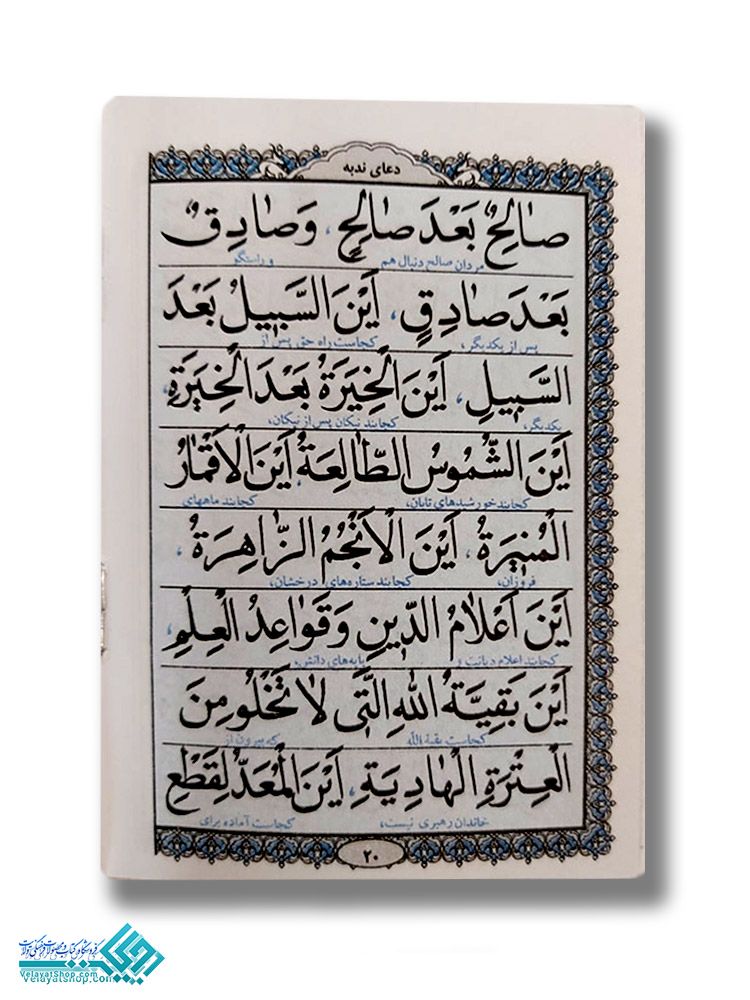 دعای ندبه
صٰالِحٌ بَعْدَ صٰالِحٍ، وَ صٰادِقٌ
مردان صالح دنبال هم و راستگو
بَعْدَ صٰادِقٍ، اَيْنَ السَّبيلُ بَعْدَ
پس از یکدیگر، کجاست راه حق پس از
السَّبيلِ، اَيْنَ الْخِيَرَةُ بَعْدَ الْخِيَرَةِ،
یکدیگر، کجایند نیکان پس از نیکان،
اَيْنَ الشُّمُوسُ الطّٰالِعَةُ، اَيْنَ الْاَقْمٰارُ
کجایند خورشیدهای تابان، کجایند ماههای
الْمُنيرَةُ، اَيْنَ الْاَنْجُمُ الزّٰاهِرَةُ،
فروزان، کجایند ستاره‌های درخشان،
اَيْنَ اَعْلٰامُ الدّينِ وَ قَوٰاعِدُ الْعِلْمِ،
کجایند اعلام دیانت و پایه‌های دانش،
اَيْنَ بَقِيَّةُ اللّٰهِ الَّتى لٰا تَخْلُو مِنَ
کجاست بقیة الله که بیرون از
الْعِتْرَةِ الْهٰادِيَةِ، اَيْنَ الْمُعَدُّ لِقَطْعِ
خاندان رهبری نیست، کجاست آماده برای
۲۰
فروشگاه کتاب و محصولات فرهنگی ولایت
VelayatShop.com
Velayatshop.com